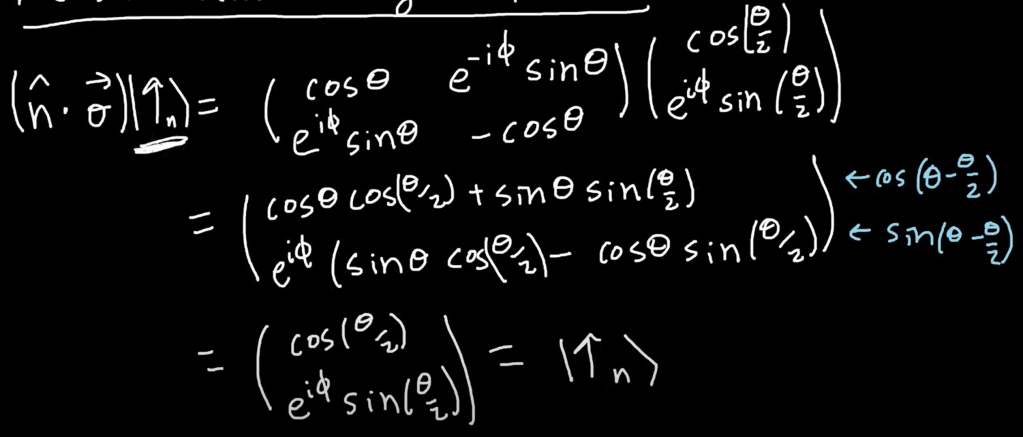 (n̂ · σ⃗)|↑ₙ⟩ = ( cosθ e^{-iϕ} sinθ ; e^{iϕ} sinθ -cosθ ) ( cos(θ/2) ; e^{iϕ} sin(θ/2) )
= ( cosθ cos(θ/2) + sinθ sin(θ/2) ; e^{iϕ} (sinθ cos(θ/2) - cosθ sin(θ/2)) ) ← cos(θ-θ/2) ← sin(θ-θ/2)
= ( cos(θ/2) ; e^{iϕ} sin(θ/2) ) = |↑ₙ⟩